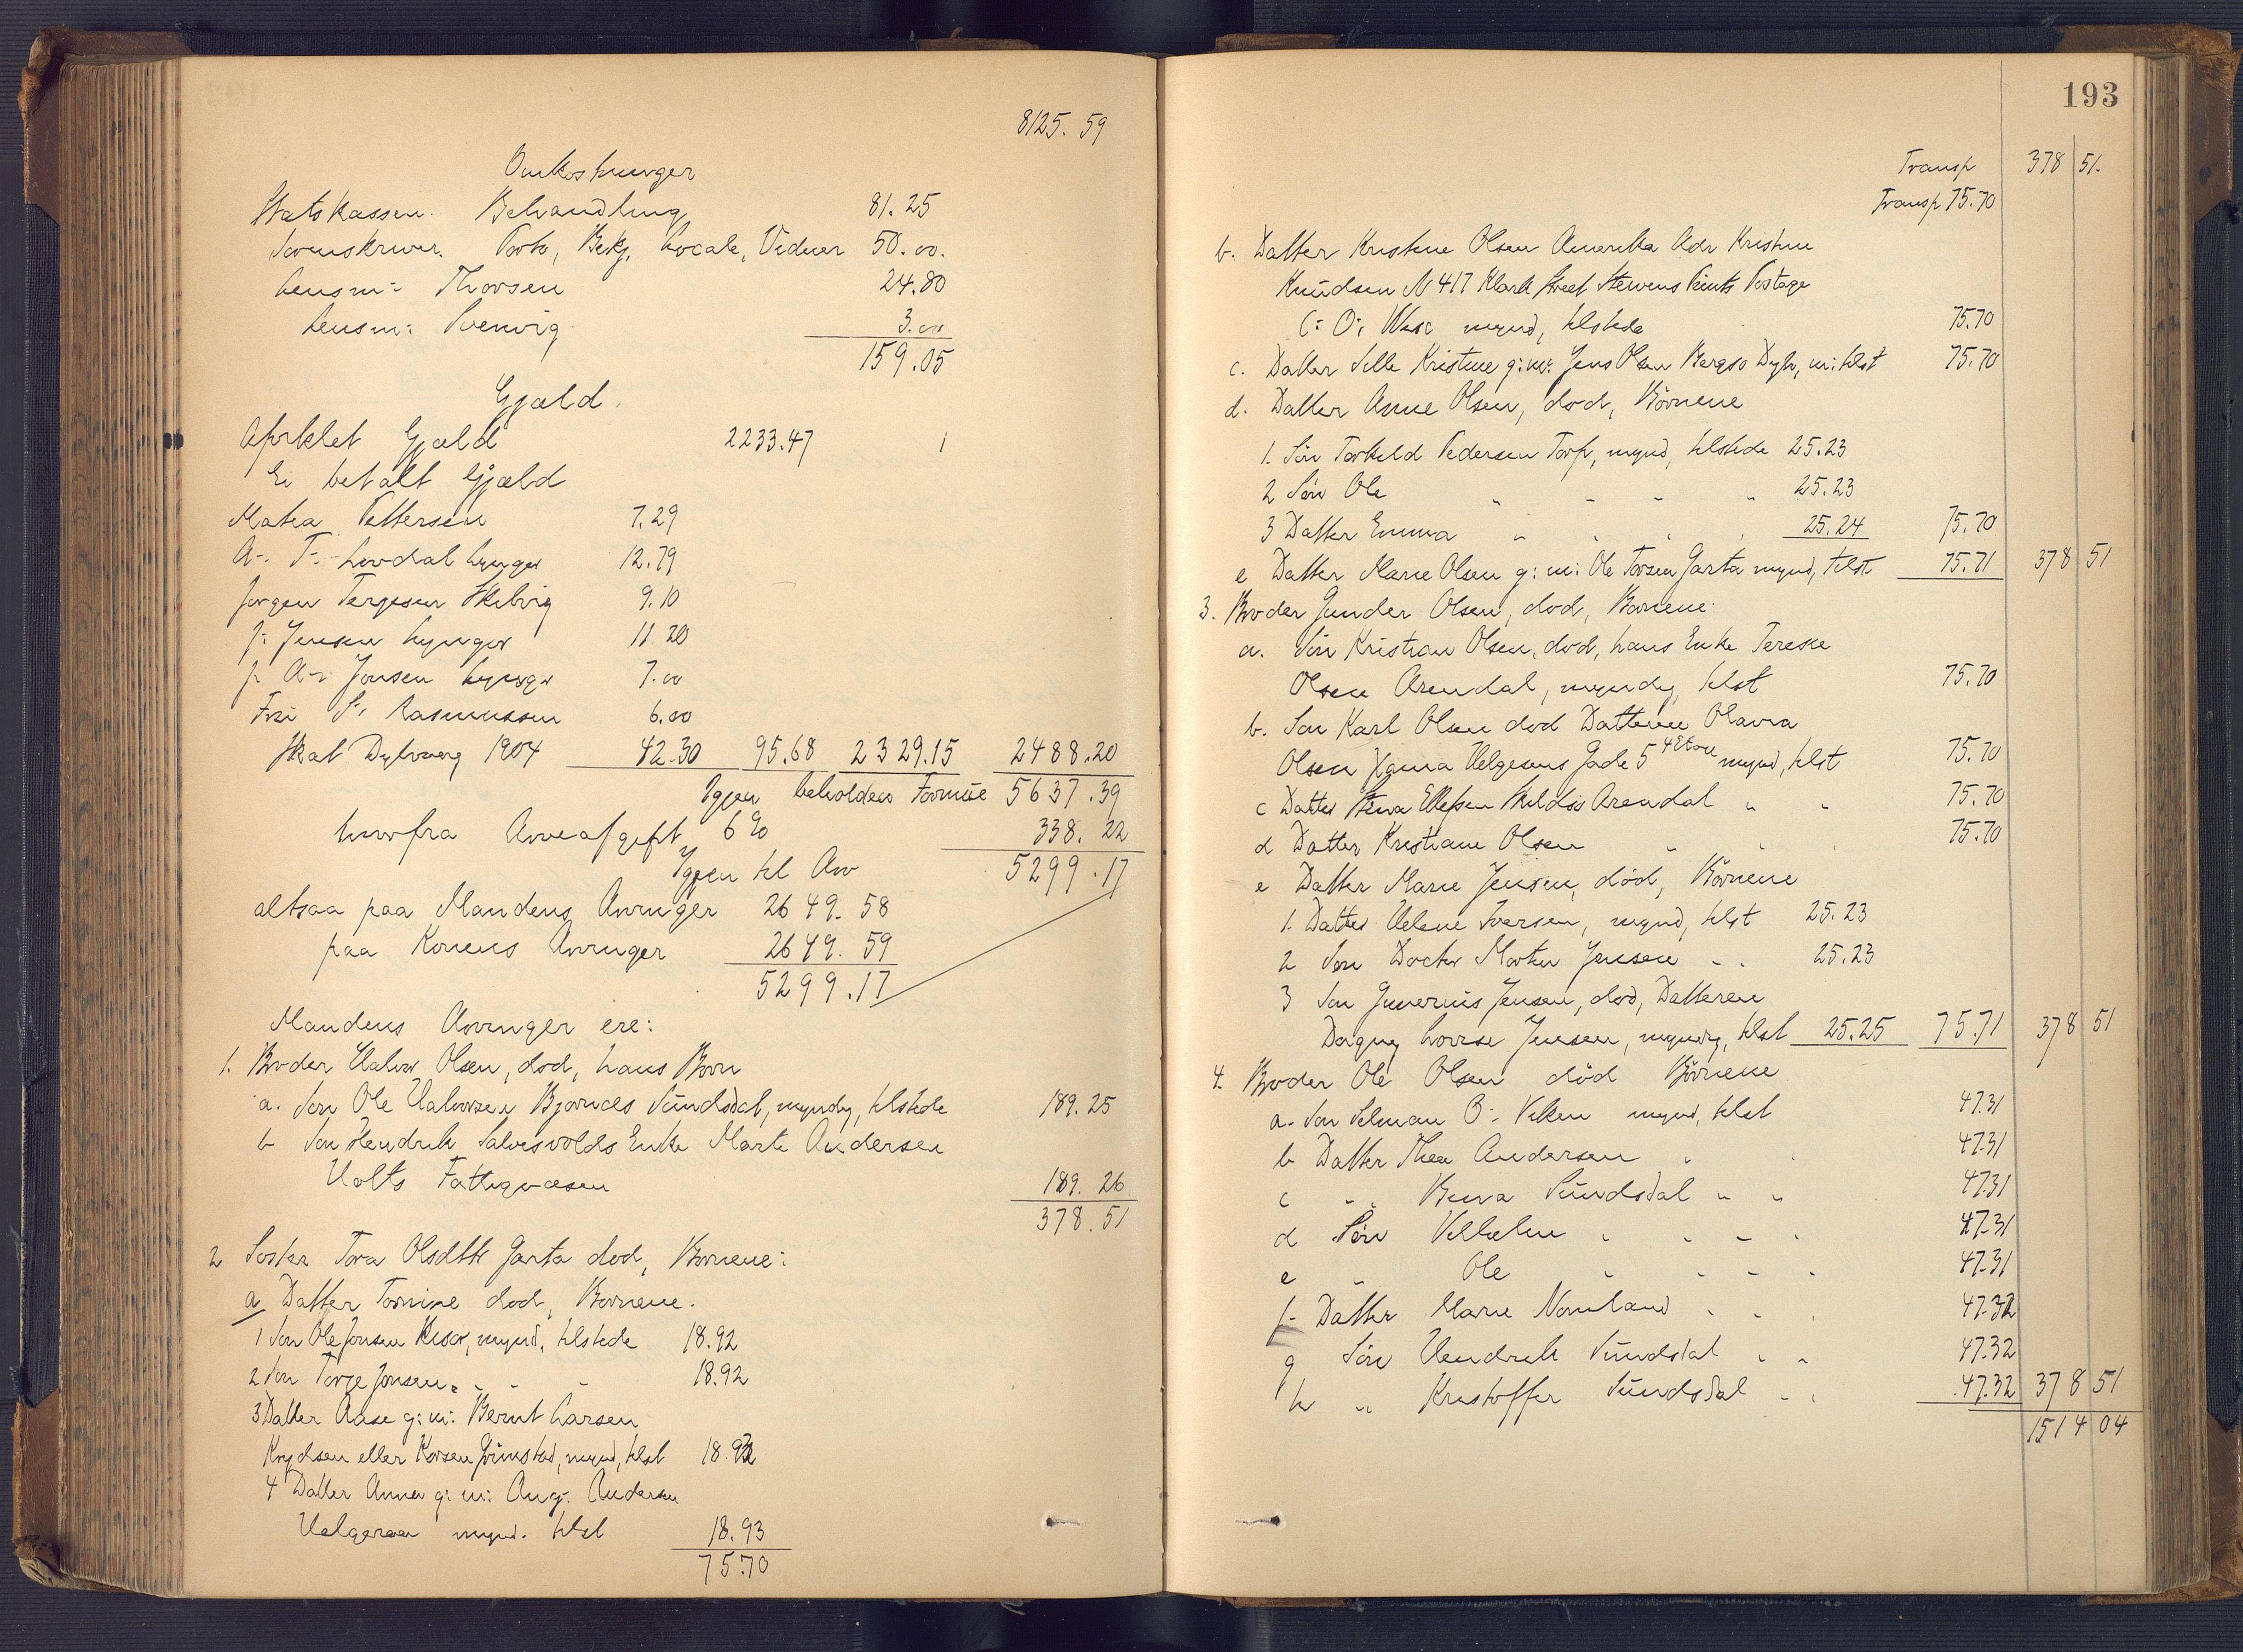 8125.59
Omkostninger
Statskassen. Behandling 81.25
Sorenskriver. Porto, Bekj, Locale, Vidner 50.00.
Lensm: Thorsen 24.80
Lensm: 3.00
159.05
Gjæld.
Afviklet Gjæld 2233.47
Ei betalt Gjæld
Matea Pettersen 7.29
A. T. Lovdal Lyngør 12.79
Jørgen Terjesen 9.10
J: Jensen Lyngør 11.20
J. A. Jonsen Lyngør 7.00
S. Rasmussen 6.00
Skat Dybvaag 1904 42.30 95.68 2329.15 2488.20
Igjen beholden Formue 5637.39
herfra Arveafgift 6% 338.22
Igjen til Arv 5299.17
altsaa paa Mandens Arvinger 2649.58
paa Konens Arvinger 2649.59
5299.17
Mandens Arvinger ere:
1. Broder Halvor Olsen, død, hans Børn
a. Søn Ole Halvorsen Bjørnæs Sündsdal, myndig, tilstede 189.25
b Søn Hendrik Enke Marte Andersen
Holts Fattigvæsen 189.26
378.51
2 Søster Tora Olsdtr Garta død, Børnene:
a, Datter død, Børnene.
1 Søn Ole Jonsen Risør, mynd, tilstede 18.92
2 Søn Terje Jonsen " - - - 18.92
3 Datter Aase g: m: Bernt Larsen
eller Grimstad, mynd, tilst 18.93
4 Datter Anna g: m: Aug. Andersen
mynd. tilst 18.93
75.70
193
Transp 378 51.
Transp 75.70
b. Datter Kristine Olsen Amerika Adr Kristine
Knüdsen N 417 Klark Street Stevens Points Postage
C: O: Wisc mynd, tilstede 75.70
c. Datter Kristine g: m: Jens Olsen Bergsø Dybv, m: tilst 75.70
d. Datter Anne Olsen, død, Børnene
1. Søn Torkeld Pedersen Torp, mynd, tilstede 25.23
2 Søn Ole " - - " 25.23
3 Datter Emma " " " " 25.24 75.70
e Datter Marie Olsen g: m: Ole Torsen Garta mynd, tilst 75.71 378 51
3. Broder Gunder Olsen, død, Børnene:
a. Søn Kristian Olsen, død, hans Enke Terese
Olsen Arendal, myndig, tilst 75.70
b. Søn Karl Olsen død Datteren Olava
Olsen Helgesens Gade 5 4 Etage mynd, tilst 75.70
c Datter Ellefsen Arendal " " 75.70
d Datter Kristiane Olsen " " " 75.70
e Datter Marie Jensen, død, Børnene
1. Datter Helene Iversen, mynd, tilst 25.23
2 Søn Doctor Morten Jensen - . 25.23
3 Søn Jensen, død, Datteren
Dagny Lovise Jensen, myndig, tilst 25.25 75.71 378 51
4. Broder Ole Olsen død Børnene
a. Søn Salman O: Viken mynd, tilst 47.31
b Datter Thea Andersen " " 47.31
c " " Sündsdal " " 47.31
d Søn Vilhelm " " - " 47.31
e " Ole " - - - 47.31
f. Datter Marie Nomland " " 47.32
g Søn Hendrik Sündsdal " " 47.32
h " Kristoffer Sündsdal - " 47.32 378 51
1514 04